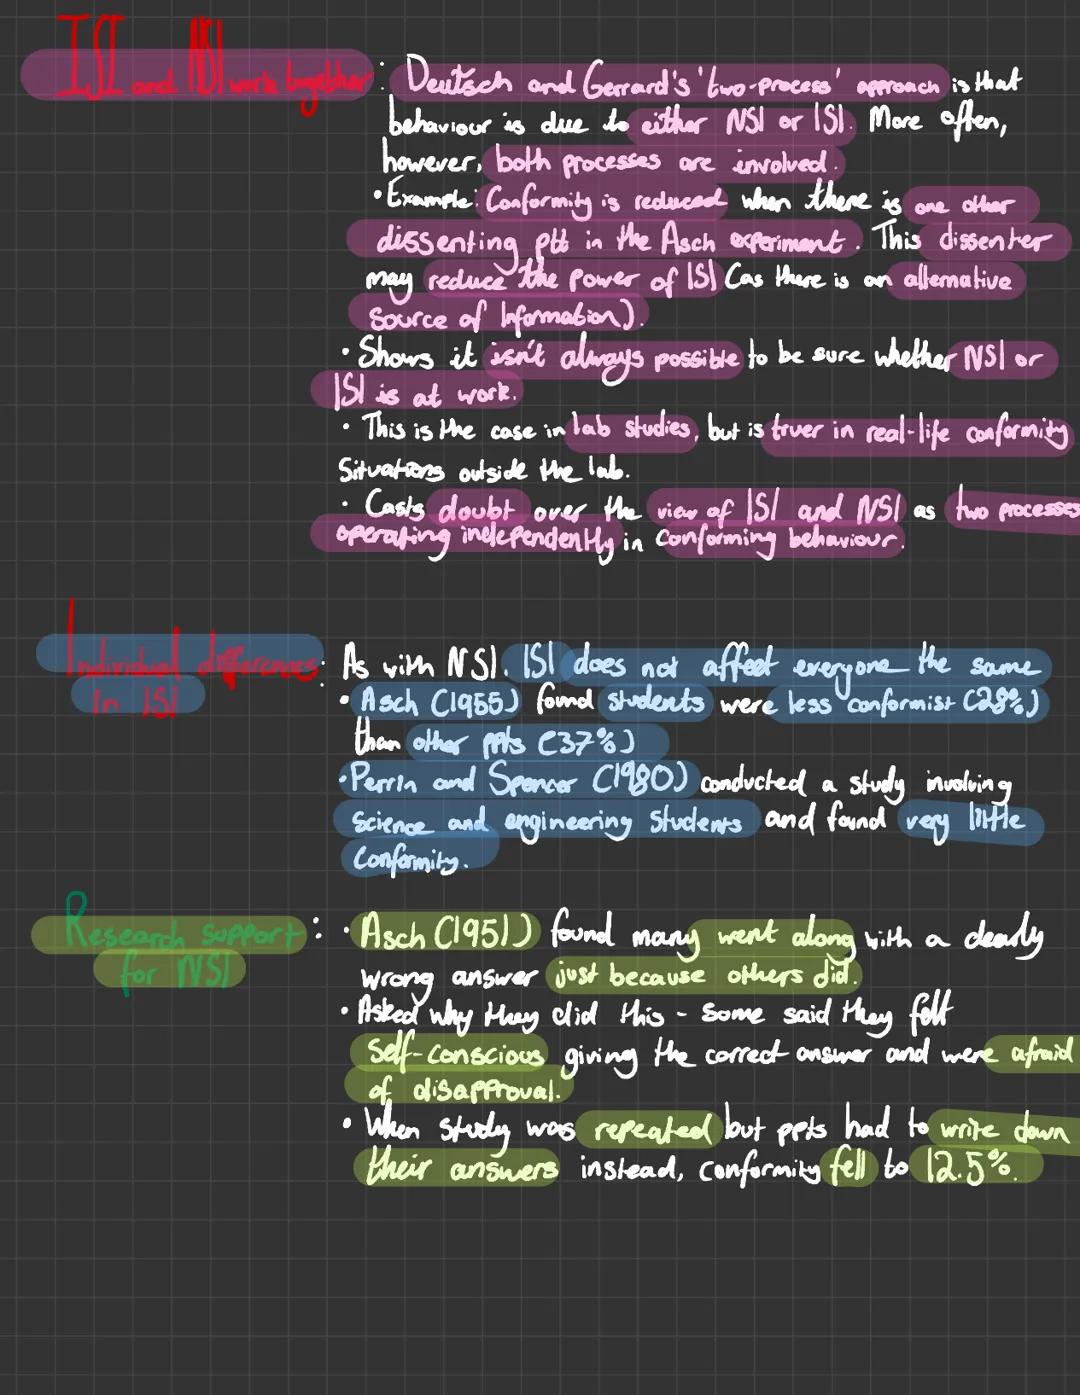 ISI and NSI work together: Deutsch and Gerrard's 'two-process' approach is that
behaviour is due to either NSI or ISI. More often,
however, both processes are involved.
• Example: Conformity is reduced when there is one other
dissenting ptt in the Asch experiment. This dissenter
may reduce the power of ISI (as there is an alternative
source of information).
• Shows it isn't always possible to be sure whether NSI or
ISI is at work.
• This is the case in lab studies, but is truer in real-life conformity
situations outside the lab.
• Casts doubt over the view of ISI and NSI as two processes
operating independently in conforming behaviour.
Individual differences: As with NSI, ISI does not affect everyone the same
in ISI
• Asch (1955) found students were less conformist (28%)
than other ppts (37%)
• Perrin and Spencer (1980) conducted a study involving
science and engineering students and found very little
conformity.
Research support: • Asch (1951) found many went along with a clearly
for NSI
wrong answer just because others did.
• Asked why they did this - some said they felt
self-conscious giving the correct answer and were afraid
of disapproval.
• When study was repeated but ppts had to write down
their answers instead, conformity fell to 12.5%.